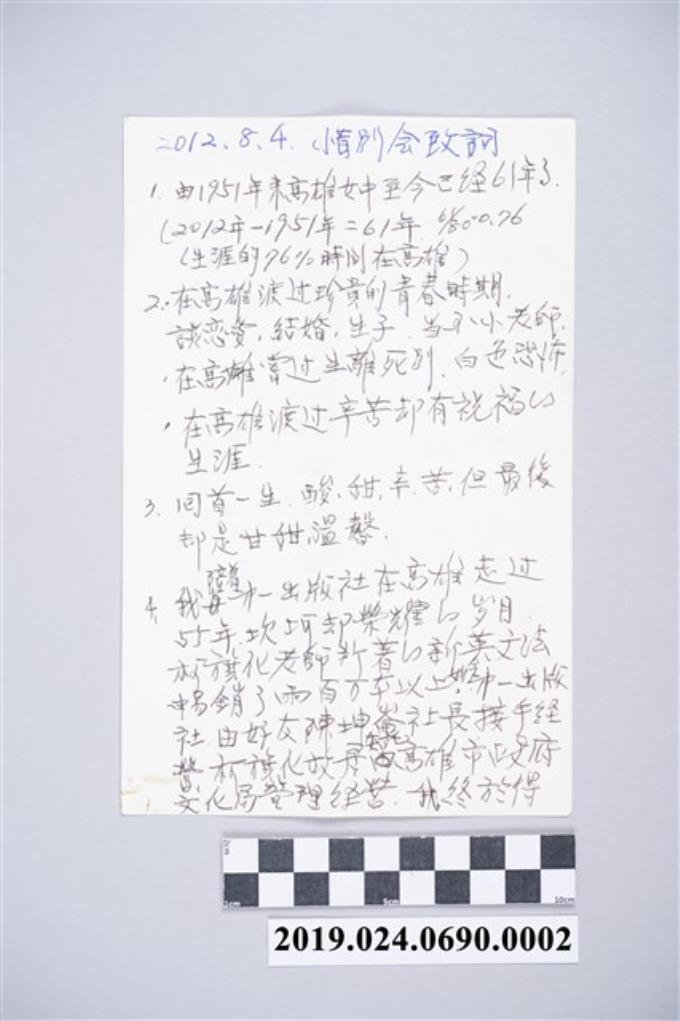 2012.8.4. 惜別会致詞
1. 由1951年来高雄女中至今已経61年了.
(2012年-1951年=61年 61/80=0.76
(生涯的76%時间在高雄)
2. 在高雄渡过珍貴的青春時期.
談恋愛,結婚,生子 当小老師.
·在高雄嘗过生離死別.白色恐怖.
·在高雄渡过辛苦却有祝福的
生涯.
3. 回首一生.酸,甜,辛,苦,但最後
却是甘甜溫馨.
4. 我 第一出版社在高雄走过
55年.坎坷却榮耀的岁月.
柯旗化老師所著的新英文法
暢銷了兩百万本以上.第一出版
社由好友陳坤崙社長接手経
營.柯旗化故居 高雄市政府
文化局管理経营.我終於得
1cm
5cm
10cm
2019.024.0690.0002